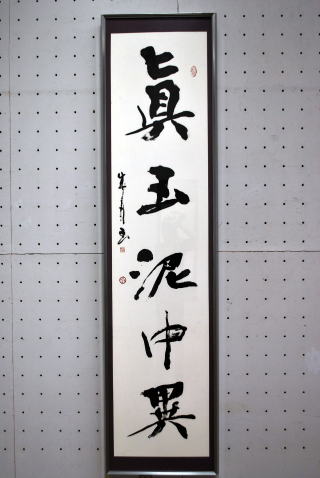 眞玉泥中異